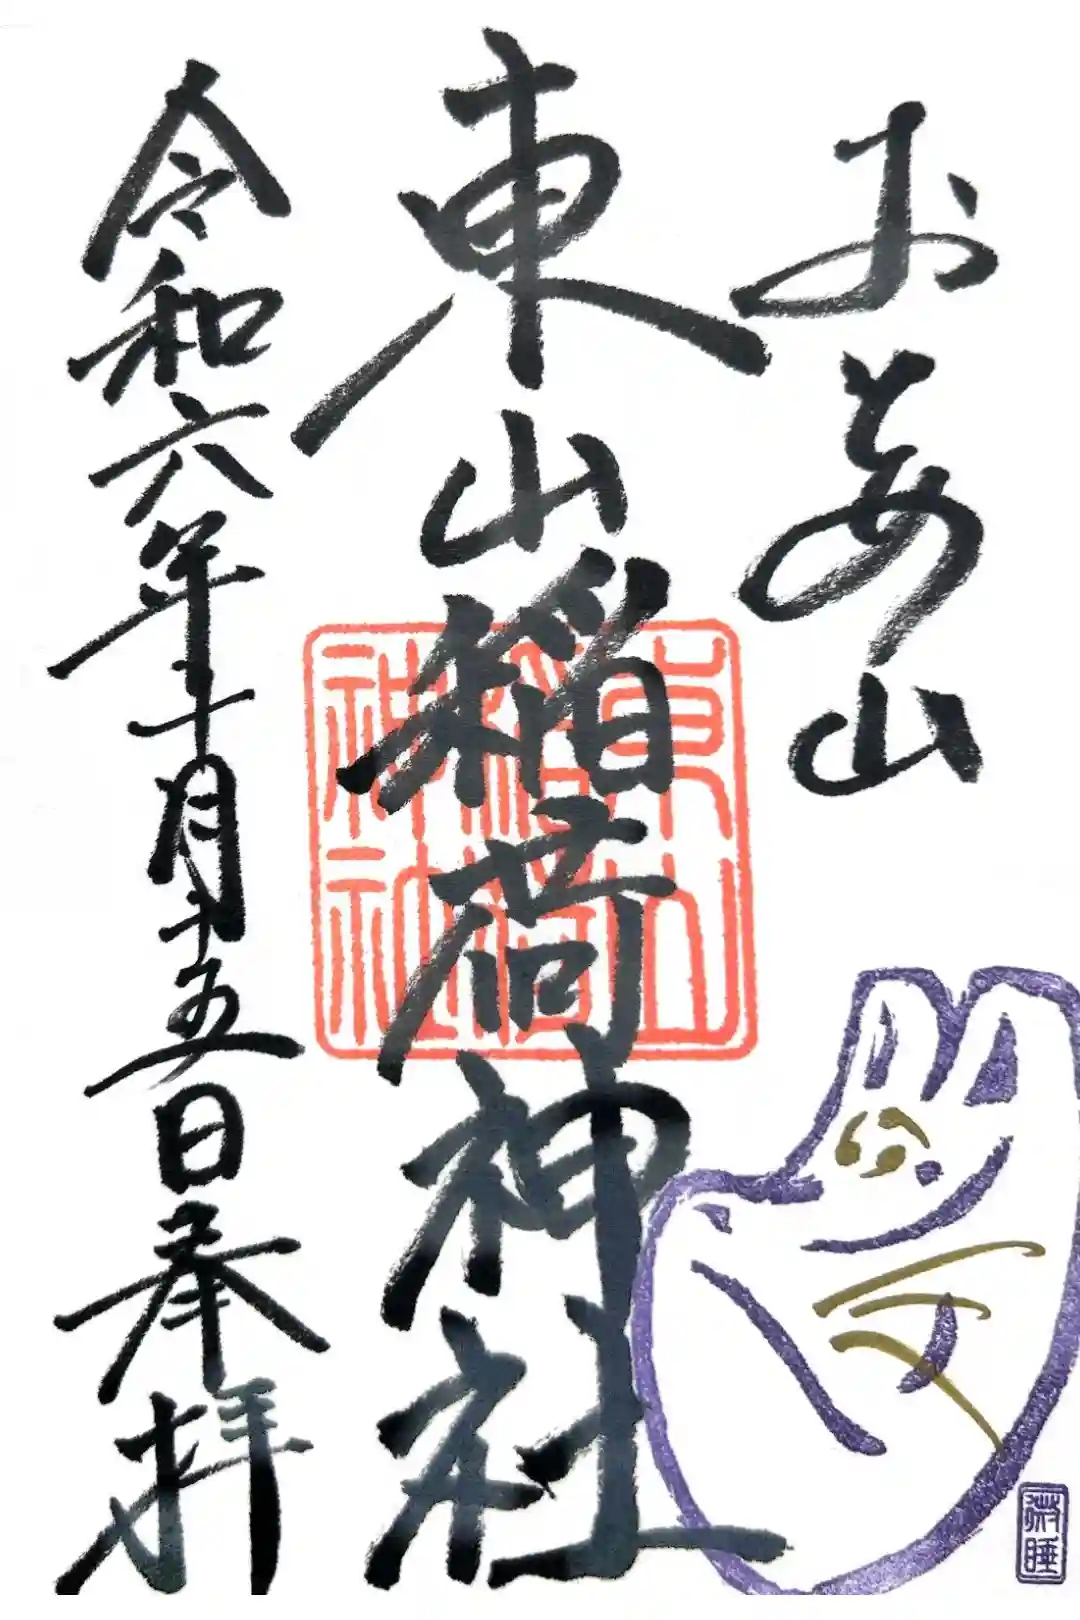 おとめ山
東山稲荷神社
令和六年 月十五日奉拝
東山
稲荷
神社
微睡